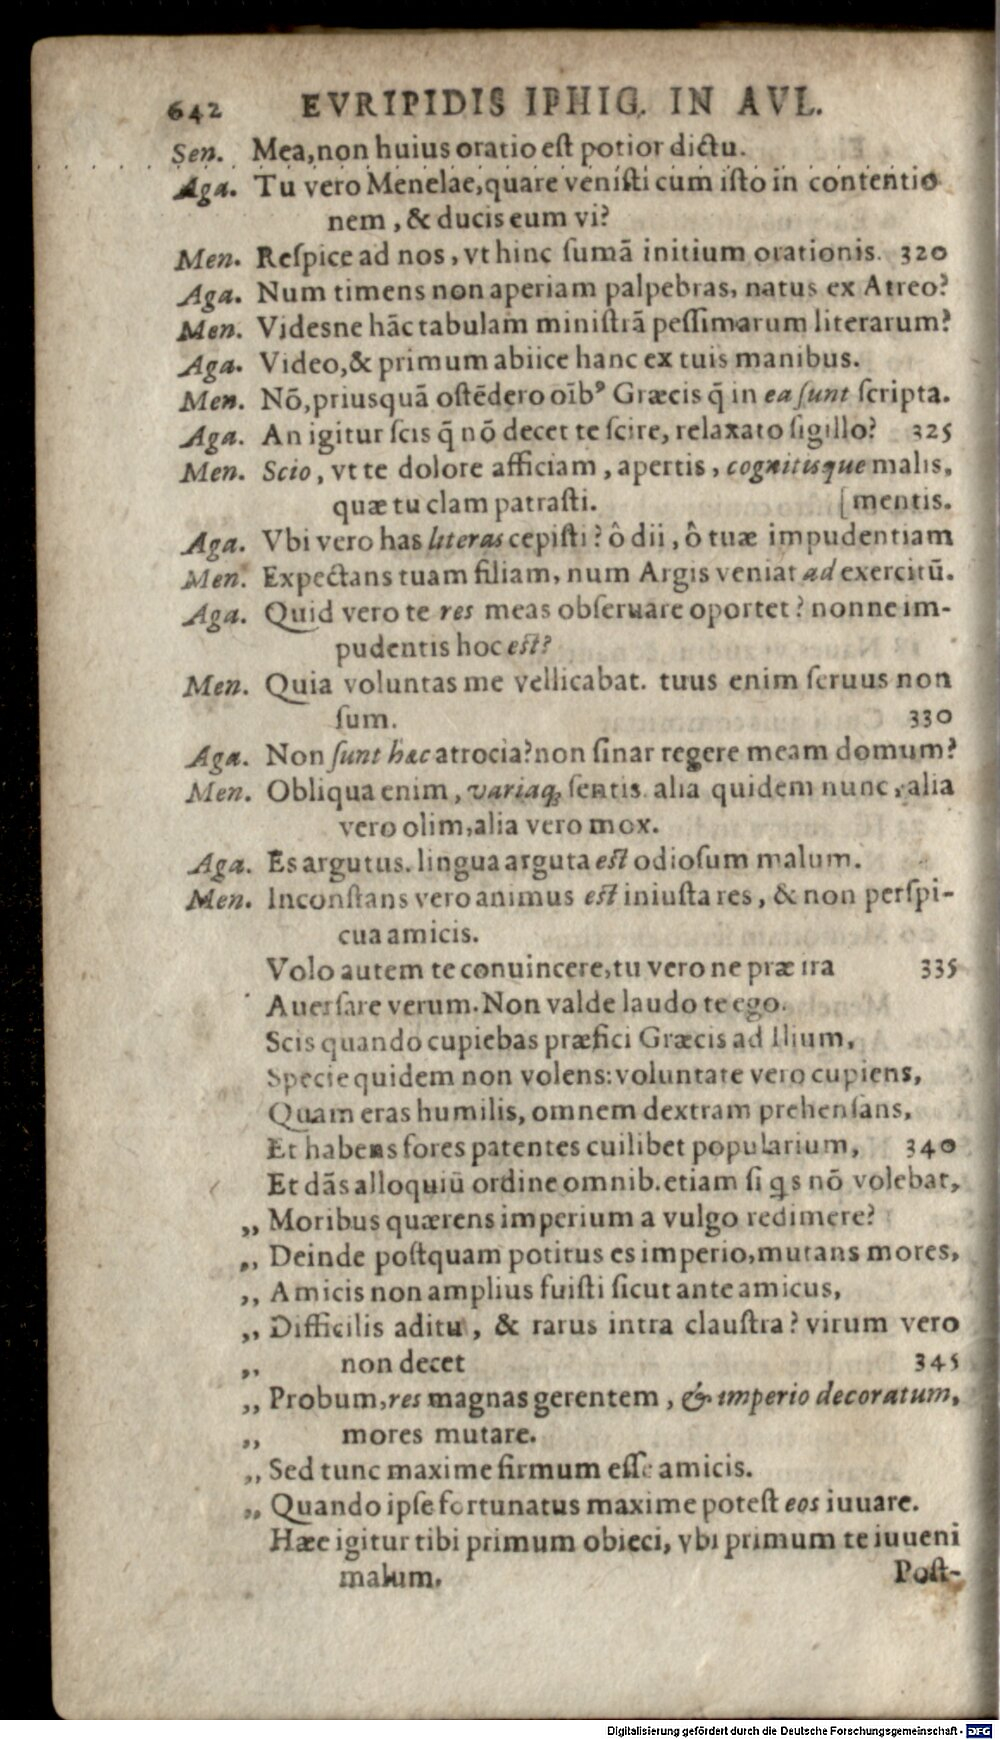 642 EVRIPIDIS IPHIG. IN AVL.
Sen. Mea, non huius oratio est potior dictu.
Aga. Tu vero Menelae, quare venisti cum isto in contentio
nem, & ducis eum vi?
Men. Respice ad nos, vt hinc sumā initium orationis. 320
Aga. Num timens non aperiam palpebras, natus ex Atreo?
Men. Videsne hāc tabulam ministrā pessimarum literarum?
Aga. Video, & primum abiice hanc ex tuis manibus.
Men. Nō, priusquā ostēdero oīb⁹ Græcis q̄ in ea sunt scripta.
Aga. An igitur scis q̄ nō decet te scire, relaxato sigillo? 325
Men. Scio, vt te dolore afficiam, apertis, cognitisque malis,
quæ tu clam patrasti. [mentis.
Aga. Vbi vero has literas cepisti? ô dii, ô tuæ impudentiam
Men. Expectans tuam filiam, num Argis veniat ad exercitū.
Aga. Quid vero te res meas obseruare oportet? nonne im-
pudentis hoc est?
Men. Quia voluntas me vellicabat. tuus enim seruus non
sum. 330
Aga. Non sunt hæc atrocia? non sinar regere meam domum?
Men. Obliqua enim, variaq; sentis. alia quidem nunc, alia
vero olim, alia vero mox.
Aga. Es argutus. lingua arguta est odiosum malum.
Men. Inconstans vero animus est iniusta res, & non perspi-
cua amicis.
Volo autem te conuincere, tu vero ne præ ira 335
Auersare verum. Non valde laudo te ego.
Scis quando cupiebas præfici Græcis ad Ilium,
Specie quidem non volens: voluntate vero cupiens,
Quam eras humilis, omnem dextram prehensans,
Et habens fores patentes cuilibet popularium, 340
Et dās alloquiū ordine omnib. etiam si qs nō volebat,
„ Moribus quærens imperium a vulgo redimere?
„ Deinde postquam potitus es imperio, mutans mores,
„ Amicis non amplius fuisti sicut ante amicus,
„ Difficilis aditu, & rarus intra claustra? virum vero
„ non decet 345
„ Probum, res magnas gerentem, & imperio decoratum,
„ mores mutare.
„ Sed tunc maxime firmum esse amicis.
„ Quando ipse fortunatus maxime potest eos iuuare.
Hæc igitur tibi primum obieci, vbi primum te iuueni
malum. Post-
Digitalisierung gefördert durch die Deutsche Forschungsgemeinschaft - DFG